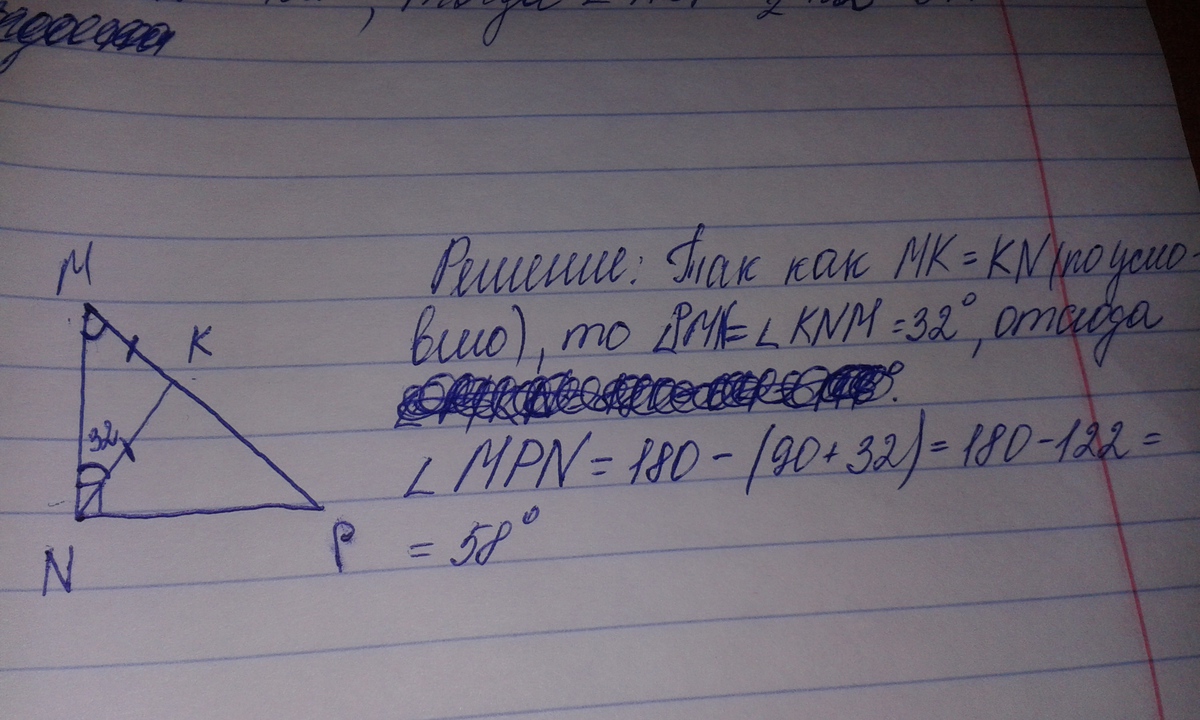 тогда ∠
M
K
32
N
P
Решение: Так как MK = KN (по усло-
вию), то ∠PMK = ∠KNM = 32°, отсюда
∠MPN = 180 - (90 + 32) = 180 - 122 =
= 58°